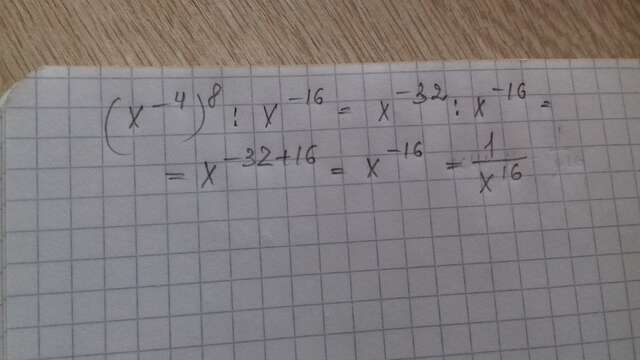 (x⁻⁴)⁸ : x⁻¹⁶ = x⁻³² : x⁻¹⁶ =
= x⁻³²⁺¹⁶ = x⁻¹⁶ = 1/x¹⁶